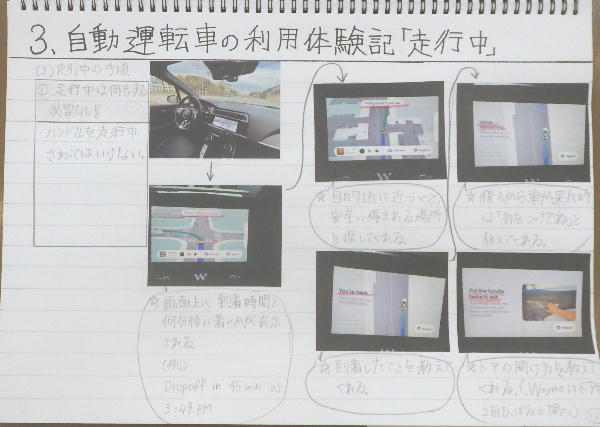 3、自動運転車の利用体験記「走行中」
(3)走行中の手順
① 走行中は何もする
必要なし!!
ハンドルを走行中、
さわってはいけない。
☆画面上に到着時間と
何分後に着くかが表示
される
(例)
Dropoff in 45 min at
3:49 PM
☆目的地に近づくと、
安全に停まれる場所
を探してくれる。
☆後ろから車が来た時
は「気をつけてね」と
教えてくれる。
You're here.
☆到着したことを教えて
くれる。
Pull the handle
twice to exit.
☆ドアの開け方も教えて
くれる。(Waymoはドアを
2回ひっぱると開く。)